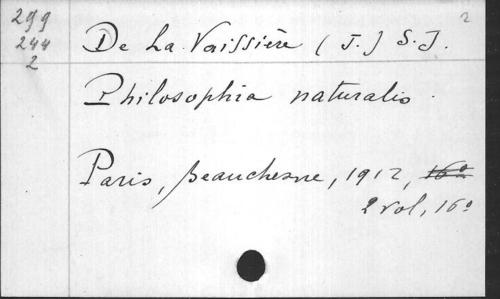 299
244
2
2
De La Vaissière (J.) S.J.
Philosophia naturalis.
Paris, Beauchesne, 1912, 16º
2 vol, 16º